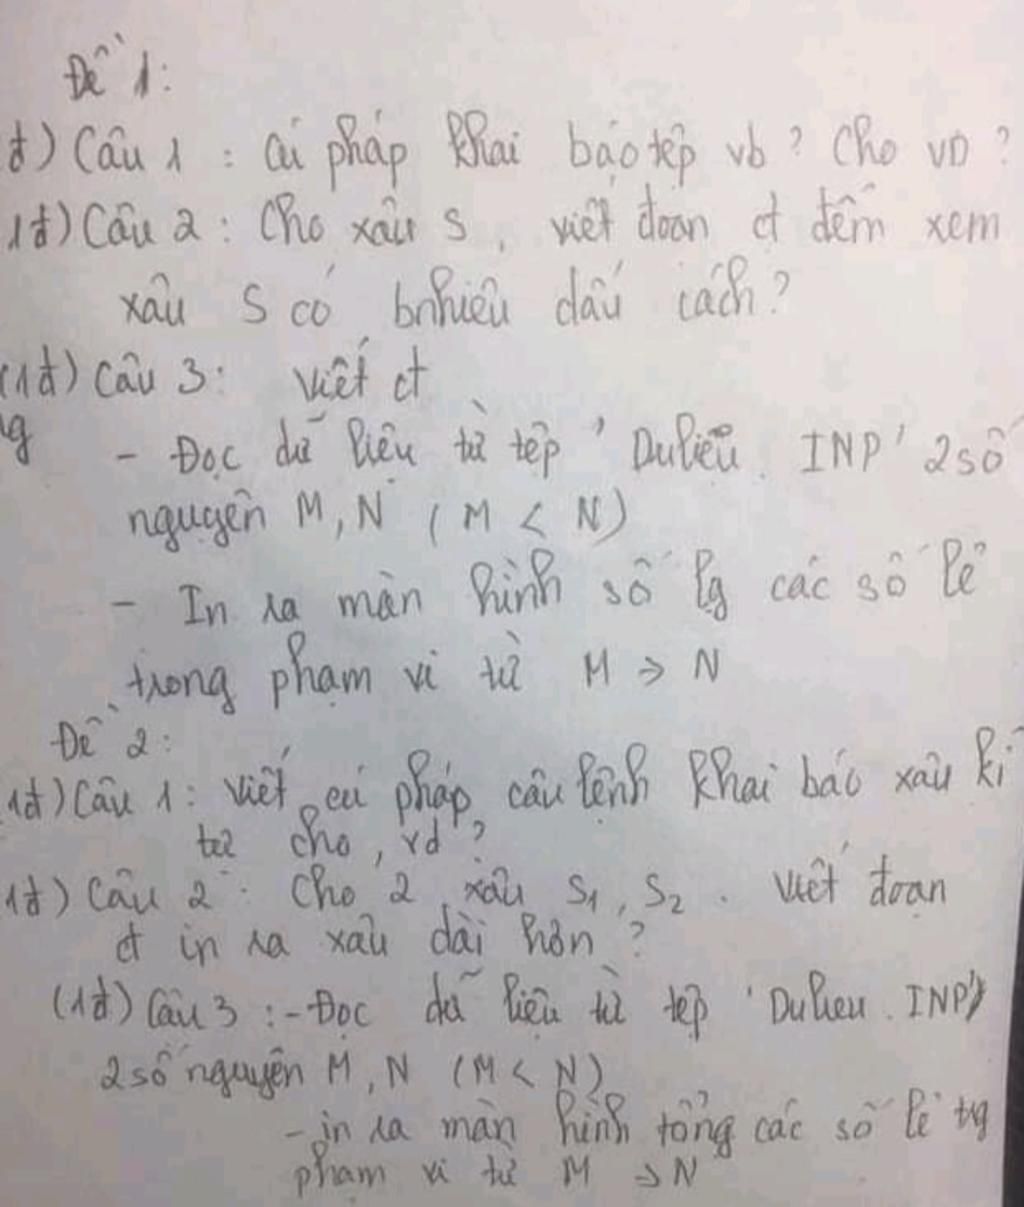 Đề 1:
đ) Câu 1 : Cú pháp khai báo tệp vb? Cho VD?
1đ) Câu 2 : Cho xâu S, viết đoạn ct đếm xem
xâu S có bnhiêu dấu cách?
(1đ) Câu 3: Viết ct
- Đọc dữ liệu từ tệp 'Dulieu.INP' 2 số
nguyên M, N (M < N)
- In ra màn hình số lg các số lẻ
trong phạm vi từ M → N
Đề 2:
1đ) Câu 1: Viết cú pháp câu lệnh khai báo xâu kí
tự cho, vd?
1đ) Câu 2 : Cho 2 xâu S1, S2. Viết đoạn
ct in ra xâu dài hơn?
(1đ) Câu 3 : - Đọc dữ liệu từ tệp 'Dulieu.INP'
2 số nguyên M, N (M < N)
- in ra màn hình tổng các số lẻ tg
phạm vi từ M → N